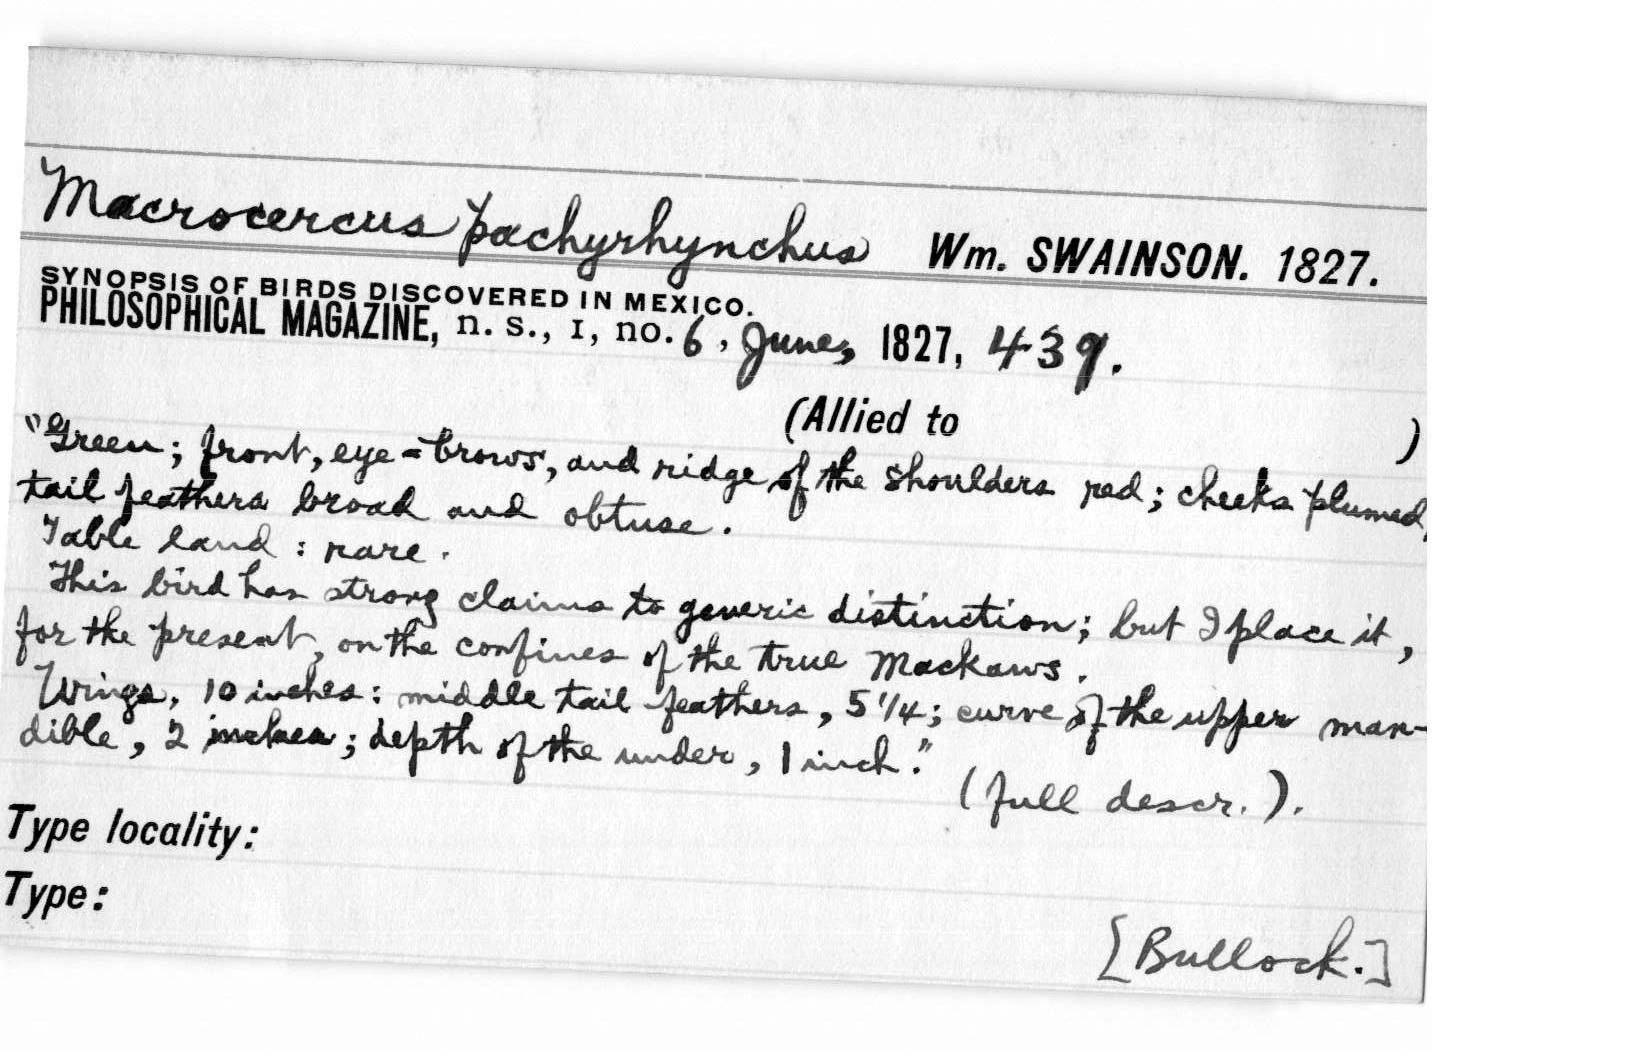 Macrocercus pachyrhynchus Wm. SWAINSON. 1827.
SYNOPSIS OF BIRDS DISCOVERED IN MEXICO.
PHILOSOPHICAL MAGAZINE, n. s., I, no. 6, June, 1827, 439.
(Allied to )
"Green; front, eye=brows, and ridge of the shoulders red; cheeks plumed,
tail feathers broad and obtuse.
Table land : rare.
This bird has strong claims to generic distinction; but I place it,
for the present, on the confines of the true Mackaws.
Wings, 10 inches: middle tail feathers, 5 1/4; curve of the upper man-
dible, 2 inches; depth of the under, 1 inch."
(full descr.).
Type locality:
Type:
[Bullock.]